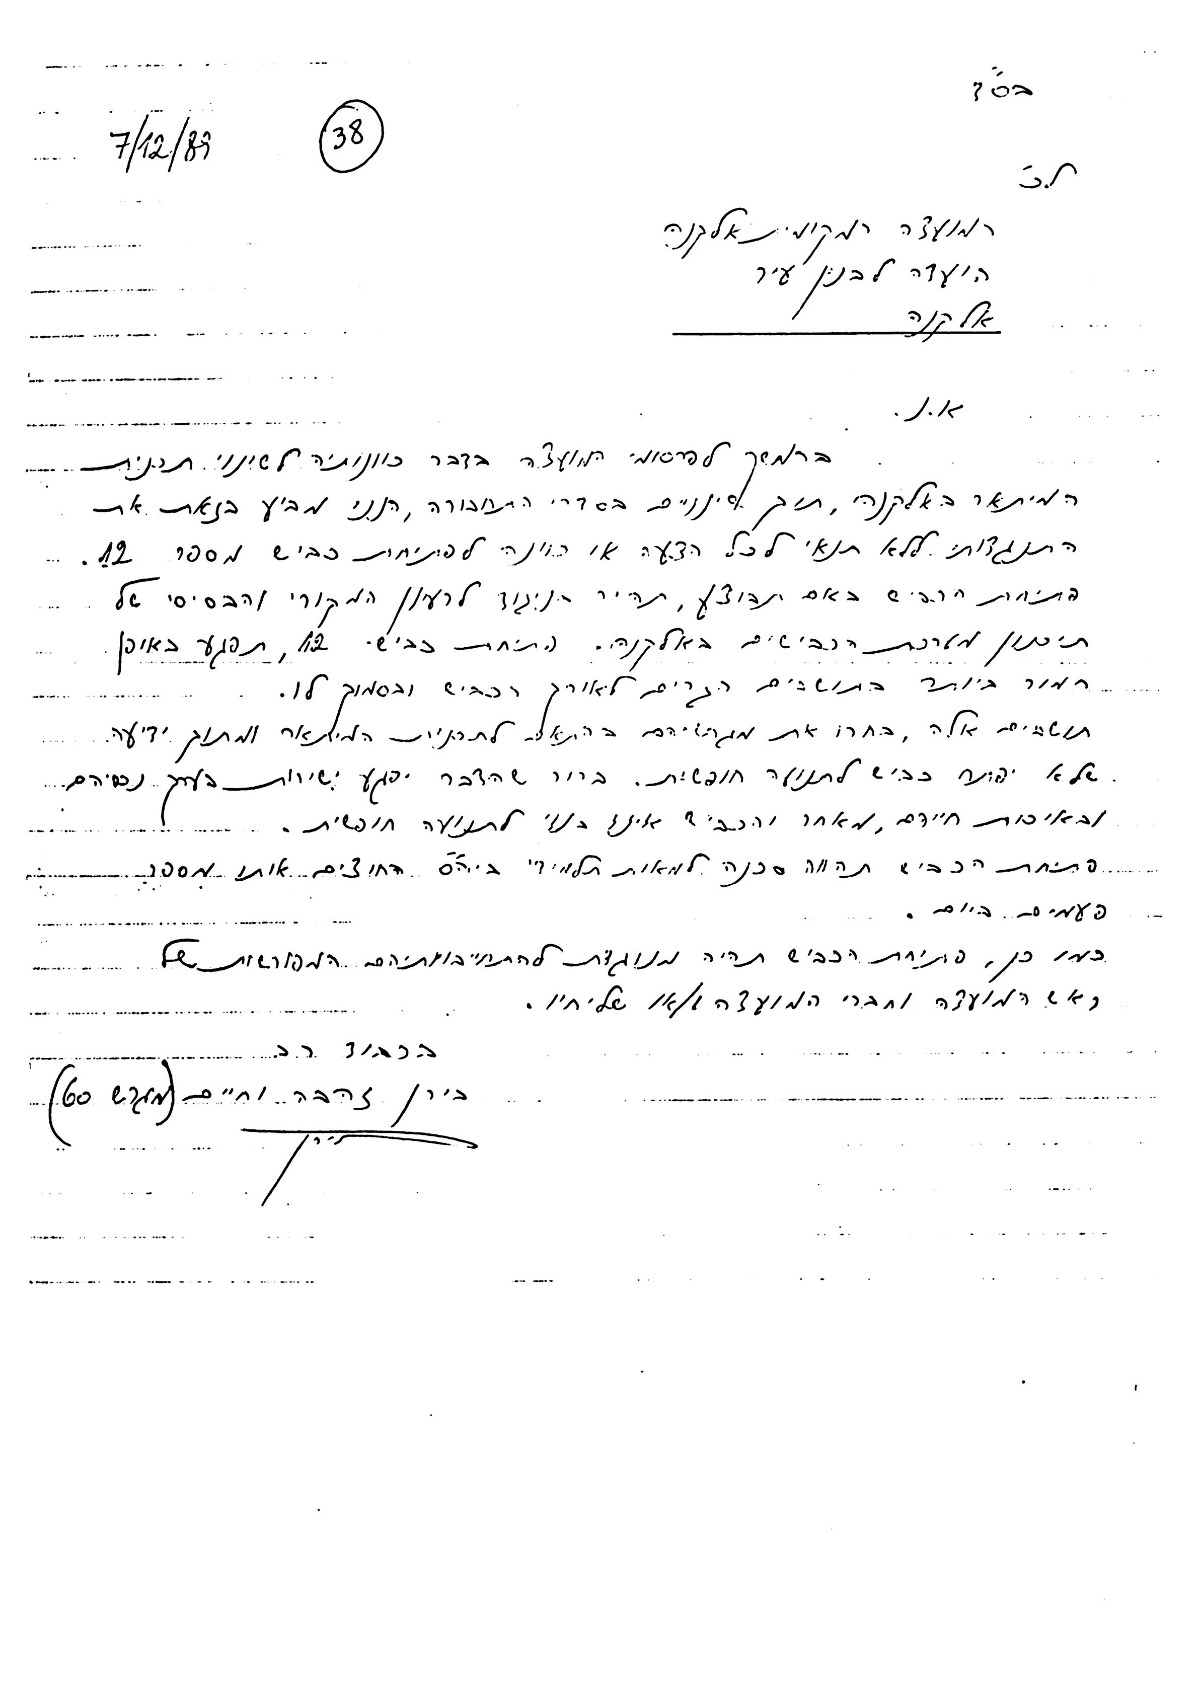 בס"ד
7/12/89
38
לכ'
המועצה המקומית אלקנה
הועדה לבנין עיר
אלקנה
א.נ.
בהמשך לפרסומי המועצה בדבר כוונותיה לשינוי תכנית
המיתאר באלקנה, תוך שינויים בסדרי התחבורה, הנני מביע בזאת את
התנגדותי ללא תנאי לכל הצעה או כוונה לפתיחת כביש מספר 12.
פתיחת הכביש באם תבוצע, תהיה בניגוד לרעיון המקורי והבסיסי של
תיכנון מערכת הכבישים באלקנה. פתיחת כביש 12, תפגע באופן
חמור ביותר בתושבים הגרים לאורך הכביש ובסמוך לו.
תושבים אלה, בחרו את מגרשיהם בהתאם לתכנית המיתאר ומתוך ידיעה
שלא יפתח כביש לתנועה חופשית. ברור שהדבר יפגע ישירות בערך נכסיהם
ובאיכות חייהם, מאחר והכביש אינו בנוי לתנועה חופשית.
פתיחת הכביש תהווה סכנה למאות תלמידי ביה"ס החוצים אותו מספר
פעמים ביום.
כמו כן, פתיחת הכביש תהיה מנוגדת להתחייבויותיהם המפורשות של
ראש המועצה וחברי המועצה ו/או שליחיו.
בכבוד רב
בירן זהבה וחיים (מגרש 60)